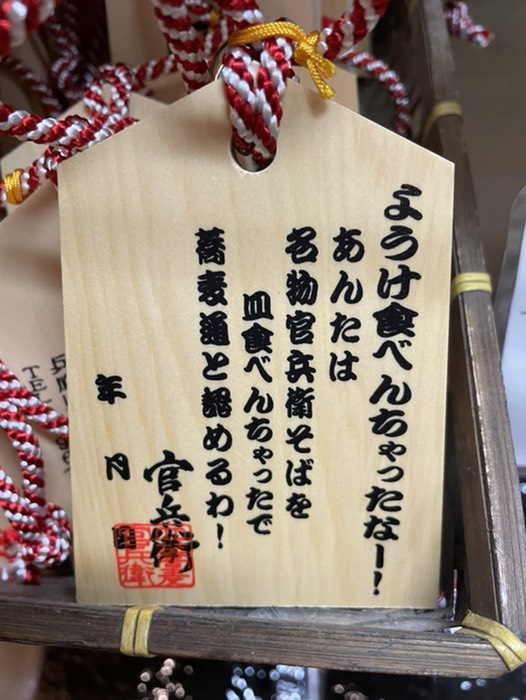 ようけ食べんちゃったなー!
あんたは
名物官兵衛そばを
皿食べんちゃったで
蕎麦通と認めるわ!
年
月
日
官兵衛
兵庫
TEL